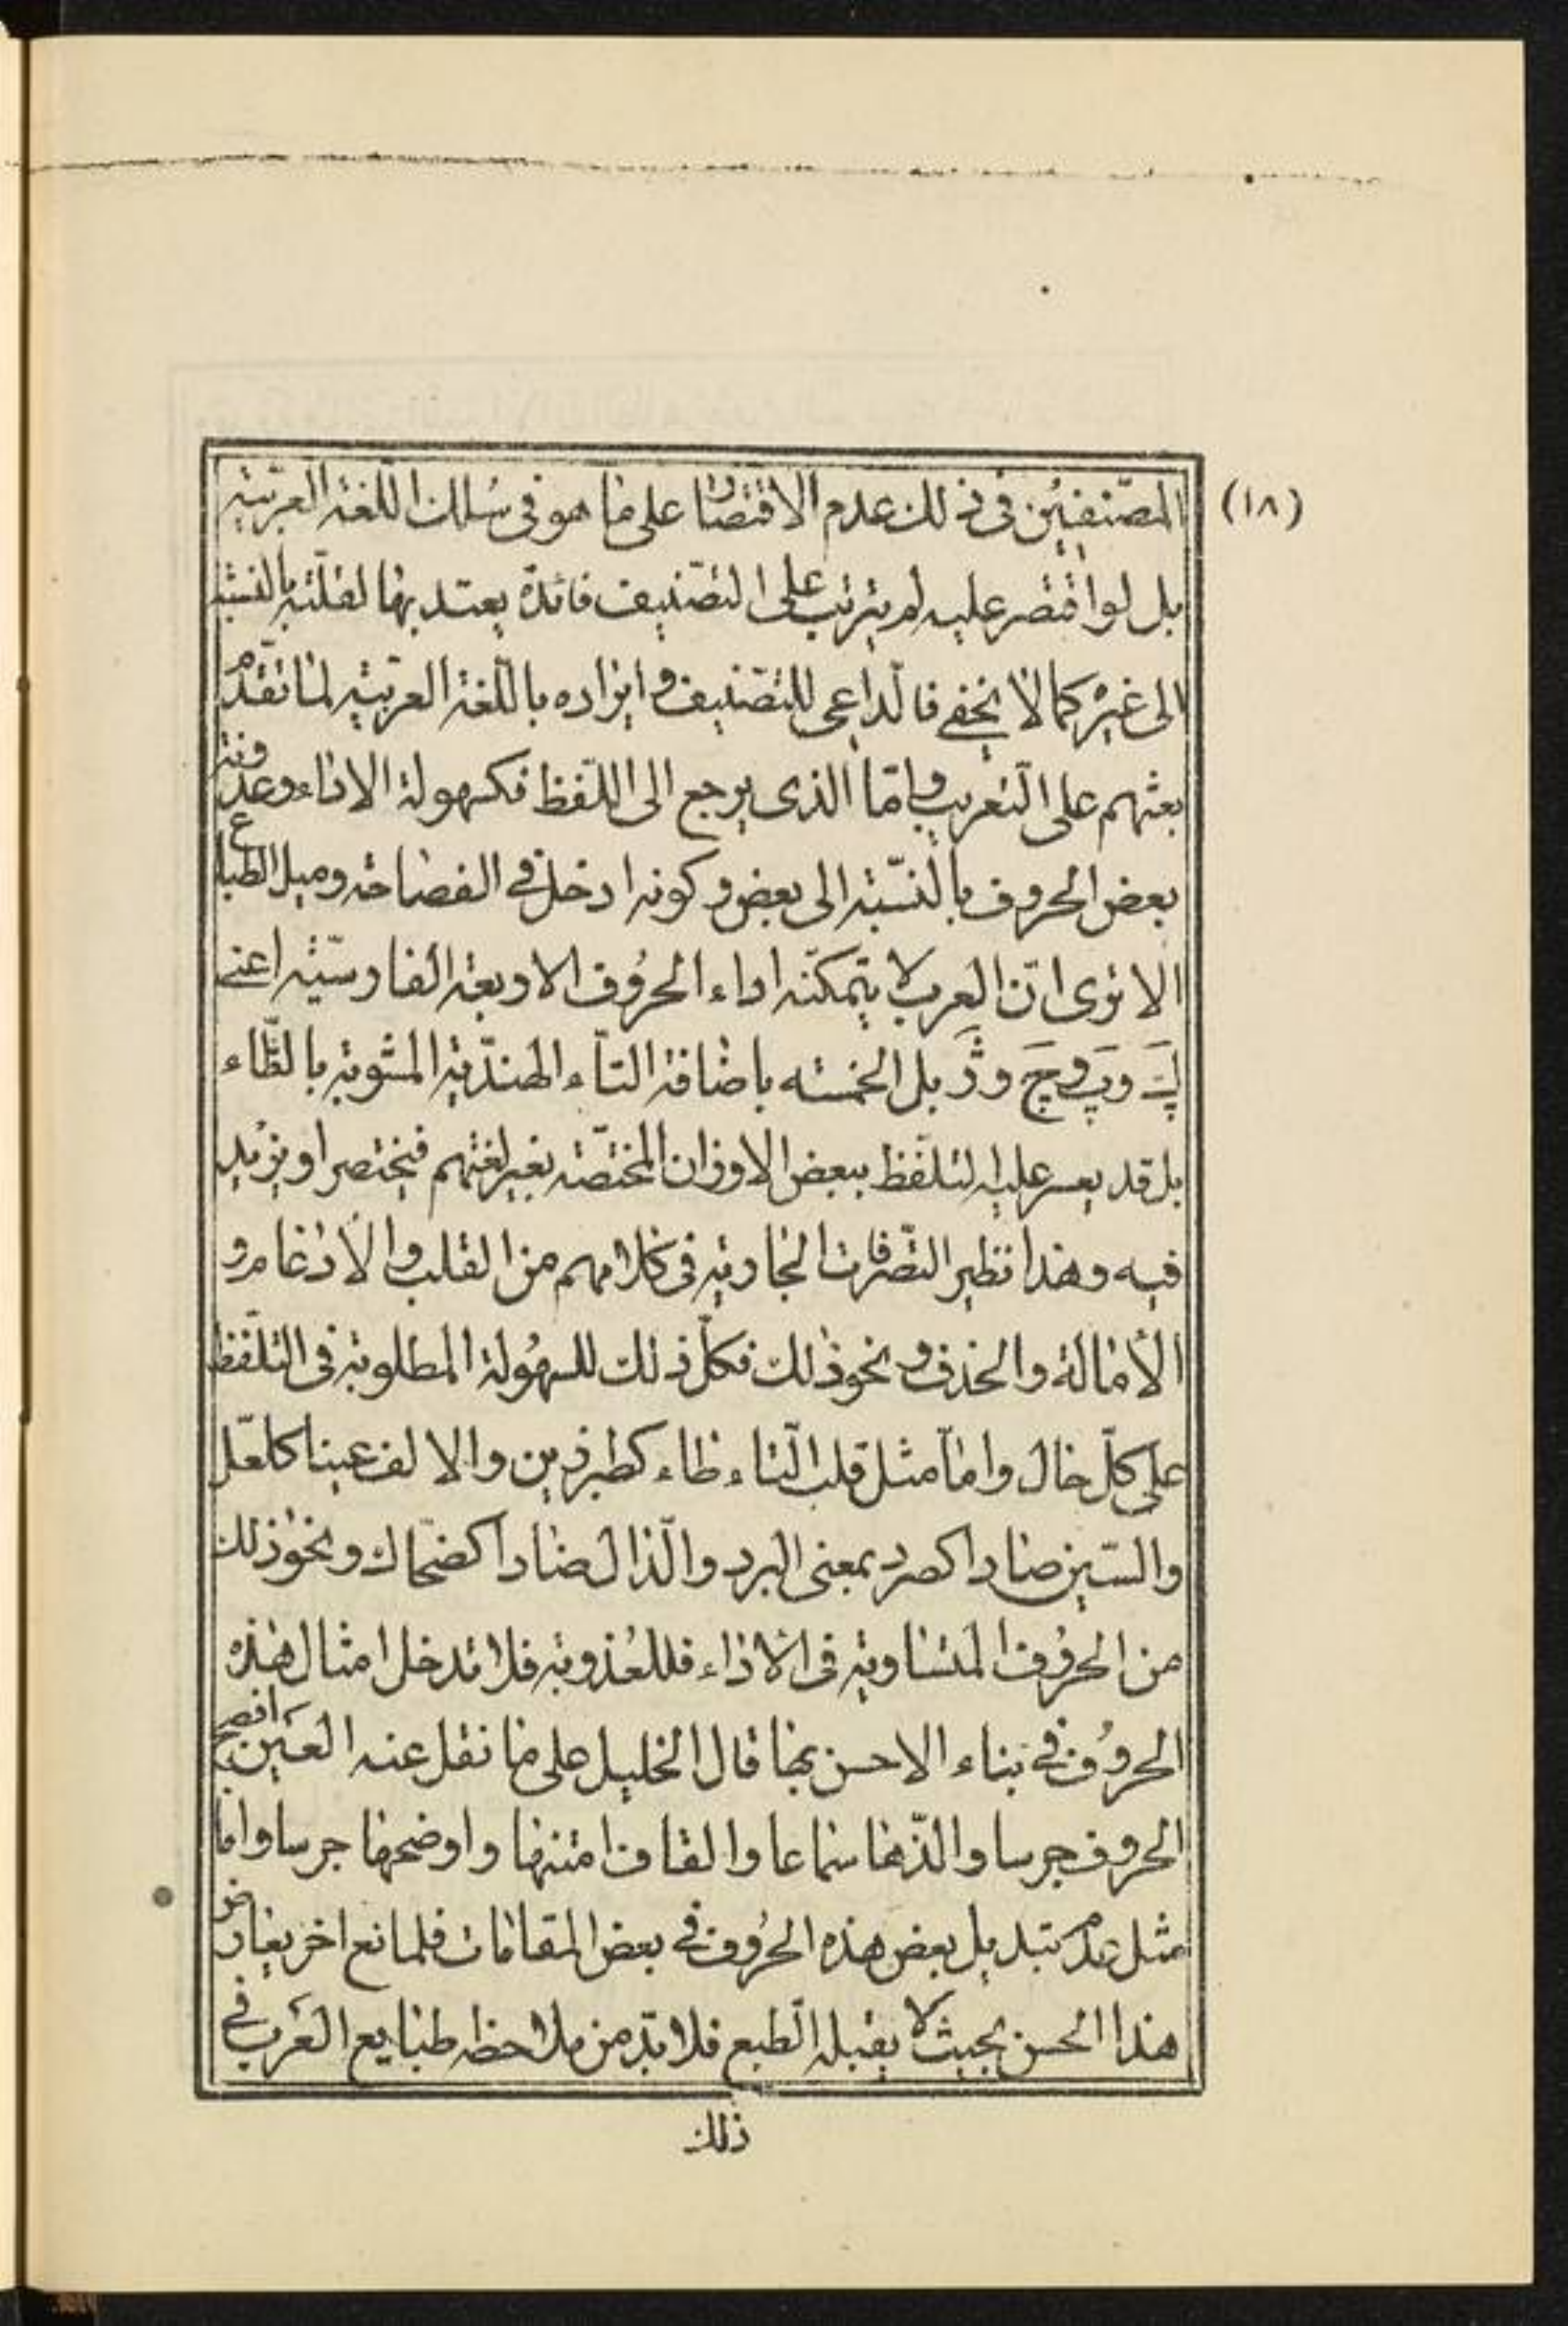 (١٨)
المصّنفين فى ذلك عدم الاقتصار على ما هو فى سُلك اللغة العربيّة
بل لو اقتصر عليه لم يترتب على التصنيف فائدة يعتد بها لقلّته بالنسبة
الى غيره كما لا يخفى فالداعى للتصنيف و ايراده باللّغة العربيّة لما تقدّم
بعثهم على التّعريب و امّا الذى يرجع الى اللّفظ فكسهولة الاداء وعذوبة
بعض الحروف بالنسّبة الى بعض و كونه ادخل فى الفصاحة وميل الطباع
الا ترى انّ العرب لا يتمكنّه اداء الحرُوف الاربعة الفارسيّة اعنى
پَ وپَ وچَ وژَ بل الخمسه باضافة التاّء الهندّية المشوبة بالطّاء
بل قد يعسر عليه التلفّظ ببعض الاوزان المختصّة بغير لغتهم فيختصر او يزيد
فيه وهذا نظير التصّرفات الجارية فى كلامهم من القلب والادغام و
الأمالة والحذف و نحو ذلك فكلّ ذلك للسهُولة المطلوبة فى التلّفظ
على كلّ حال و امّا مثل قلب التّاء طاء كطبرزين والالف عينا كلعّل
والسّين صادا كصرد بمعنى البرد والّذال ضادا كضحّاك ونحو ذلك
من الحرُوف المتساوية فى الاداء فللعُذوبة فلا تدخل امثال هذه
الحروُف فى بناء الاحسن بها قال الخليل على ما نقل عنه العَين افصح
الحروف جرسا والذّها سماعا والقاف امتنها و اوضحها جرسا وامّا
مثل عدم تبديل بعض هذه الحرُوف فى بعض المقامات فلمانع اخر يعارض
هذا الحسن بحيث لا يقبله الطّبع فلا بدّ من ملاحظه طبايع العَرب فى
ذلك